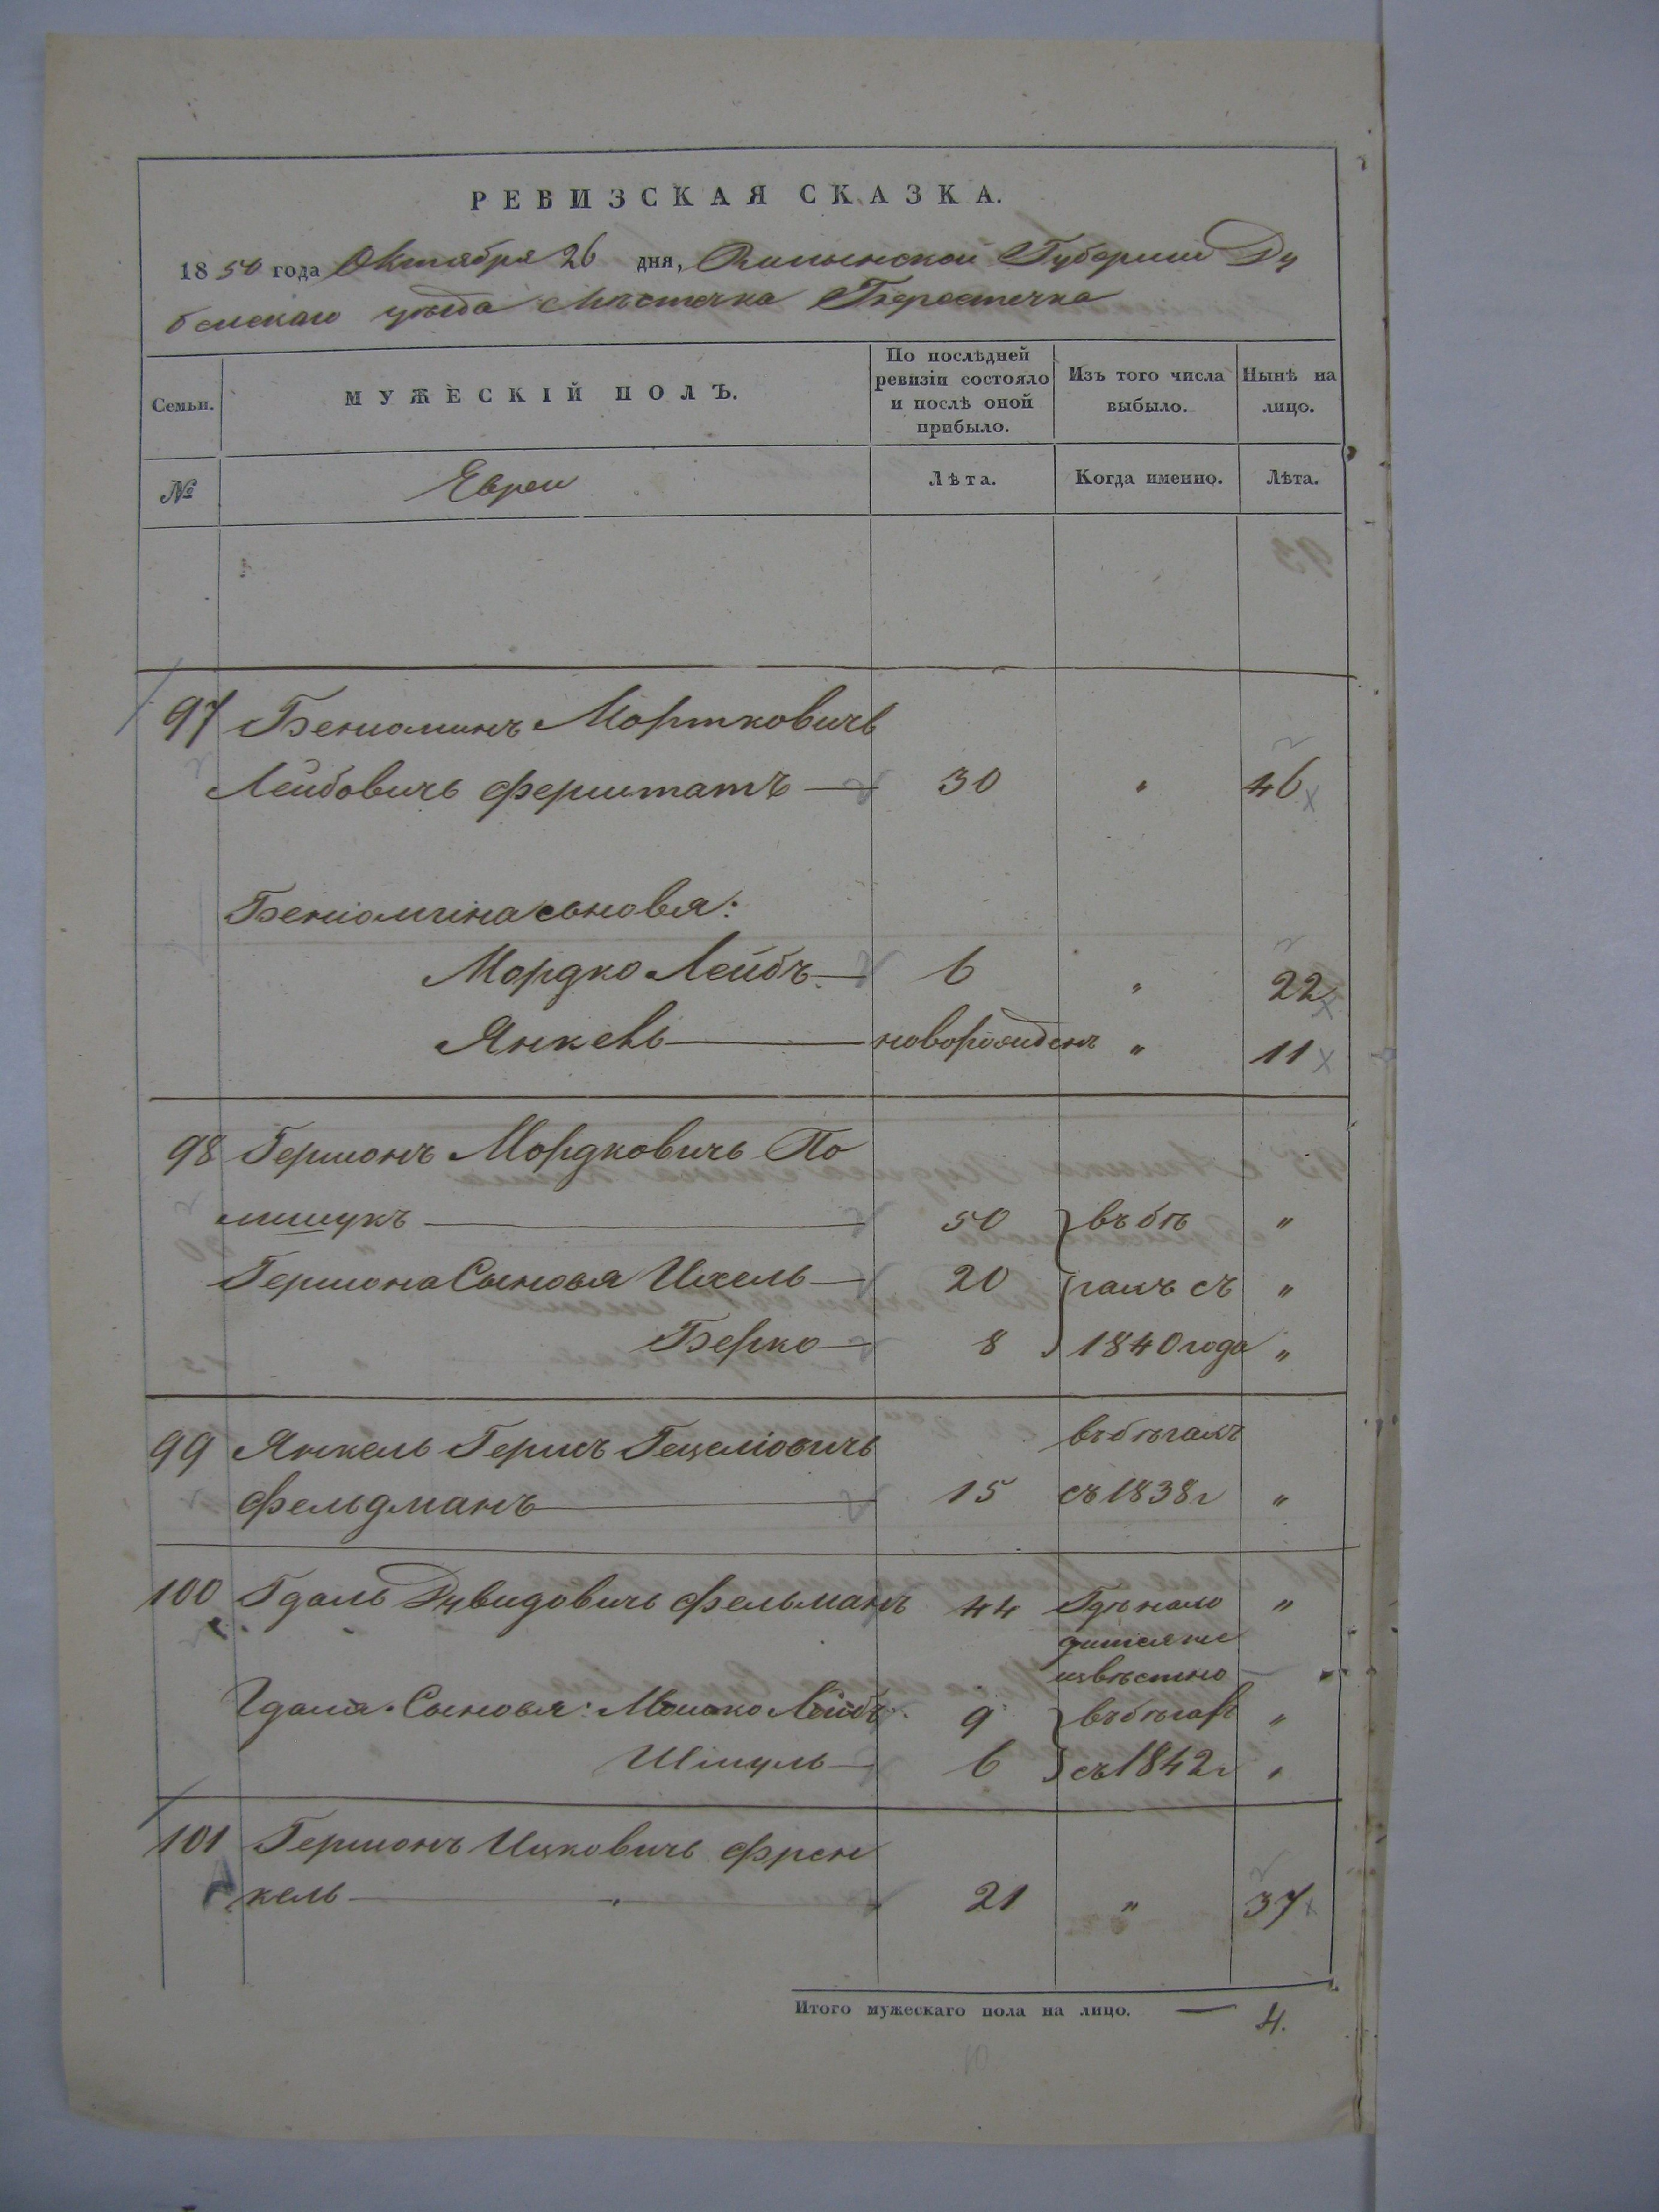 РЕВИЗСКАЯ СКАЗКА.
1850 года Октября 26 дня, Волынской Губернии Ду
бенскаго уѣзда Мѣстечка Берестечка
Семьи. МУЖЕСКІЙ ПОЛЪ. По послѣдней ревизіи состояло и послѣ оной прибыло. Изъ того числа выбыло. Нынѣ на лицо.
№ Евреи Лѣта. Когда именно. Лѣта.
97 Бениоминъ Мортковичь
Лейбовичь Ферштатъ 30 " 46
Бениомина сыновя:
Мордко Лейбъ 6 " 22
Янкель новорожденъ " 11
98 Гершонъ Мордковичь По
лишукъ 50 въ бѣ "
Гершона Сыновя Ихель 20 гахъ съ "
Берко 8 1840 года "
99 Янкель Гершъ Гецеліовичь въ бѣгахъ
Фельдманъ 15 съ 1838 г "
100 Гдаль Дувидовичь Фельманъ 44 Гдѣ нахо "
дится не
извѣстно
Гдаля Сыновя: Мошко Лейбъ 9 въ бѣгах "
Шмуль 6 съ 1842 г "
101 Гершонъ Ицковичь Френ
кель 21 " 37
Итого мужескаго пола на лицо. — 4.